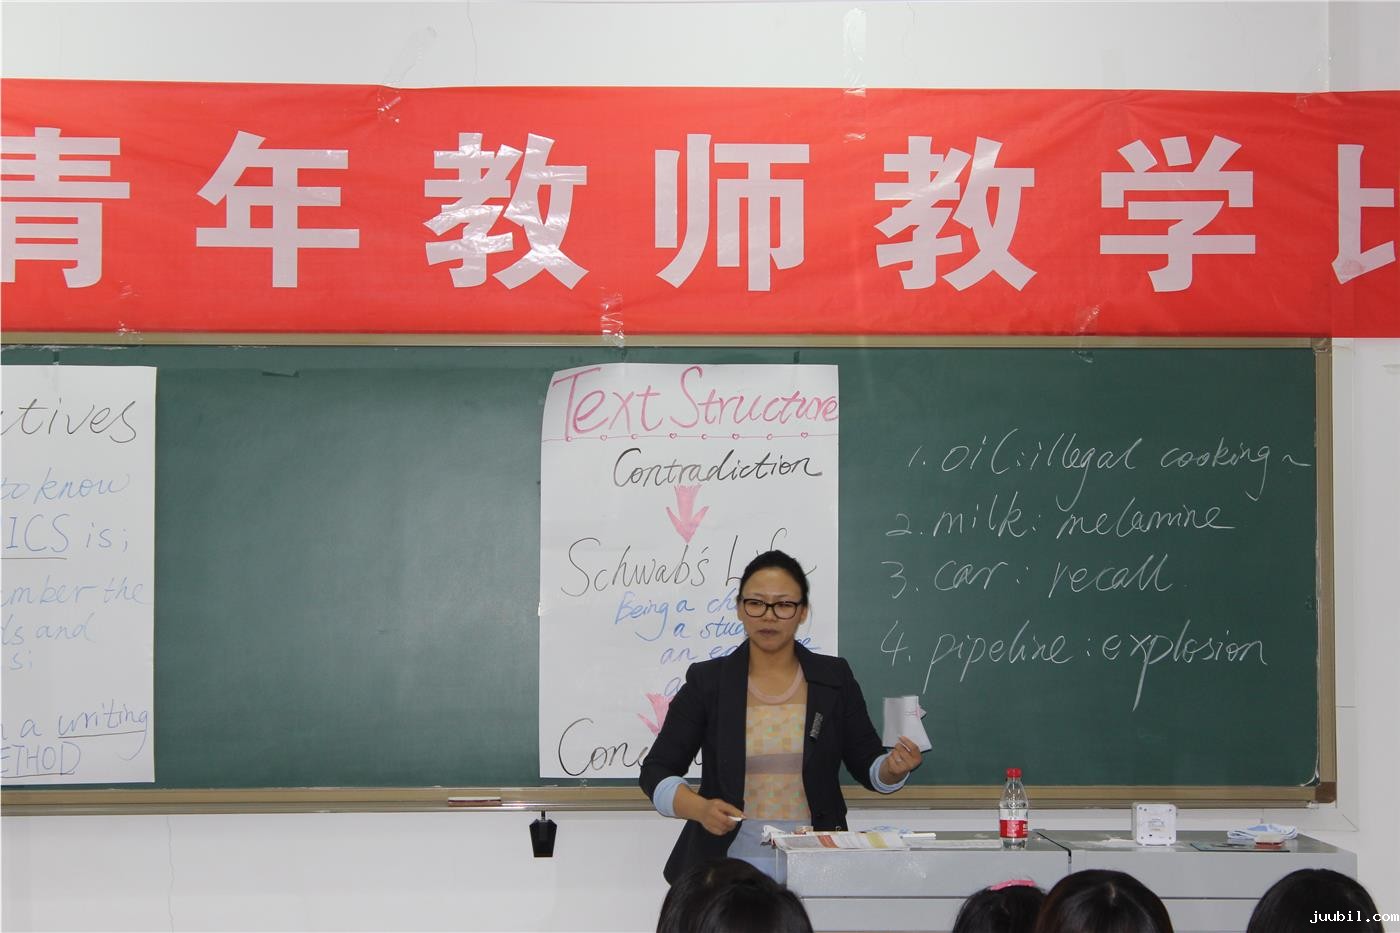 青年教师教学比
ctives
to know
ICS is;
ember the
ds and
s;
n a writing
ETHOD
Text Structure
Contradiction
Schwab's
Being a
a
an
1. oil: illegal cooking~
2. milk: melamine
3. car: recall
4. pipeline: explosion
juubil.com